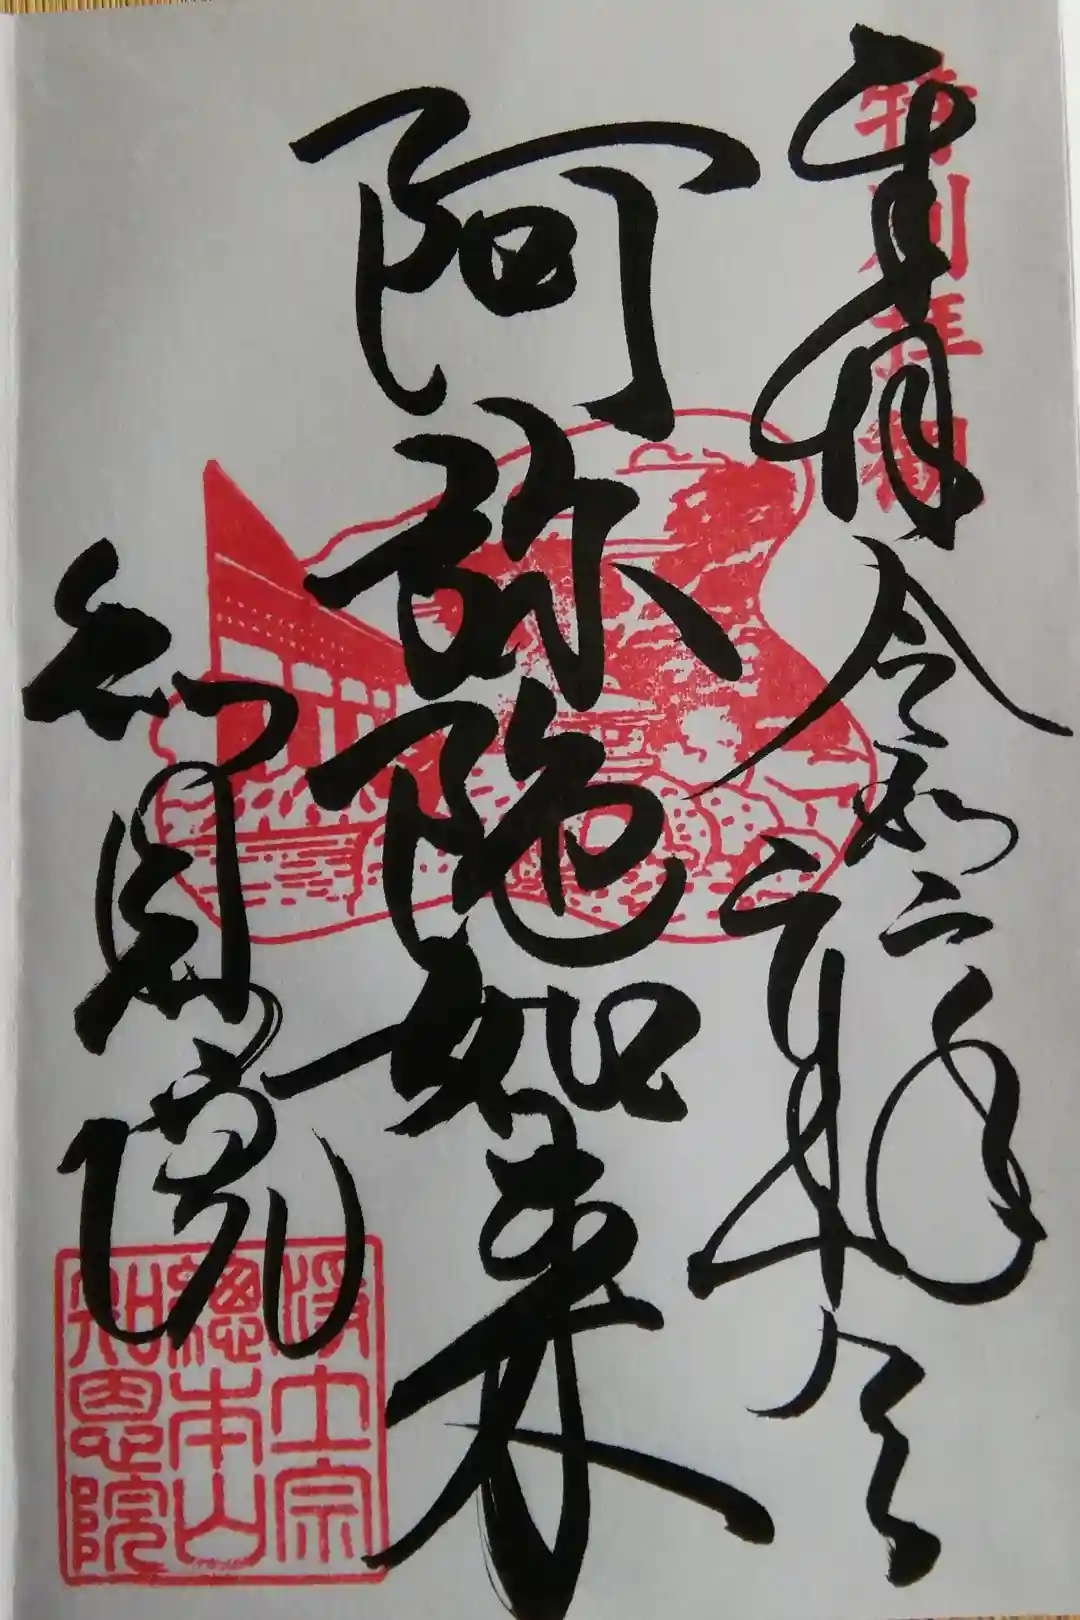 特別拝観
令和二年
阿弥陀如来
知恩院
浄土宗
總本山
知恩院